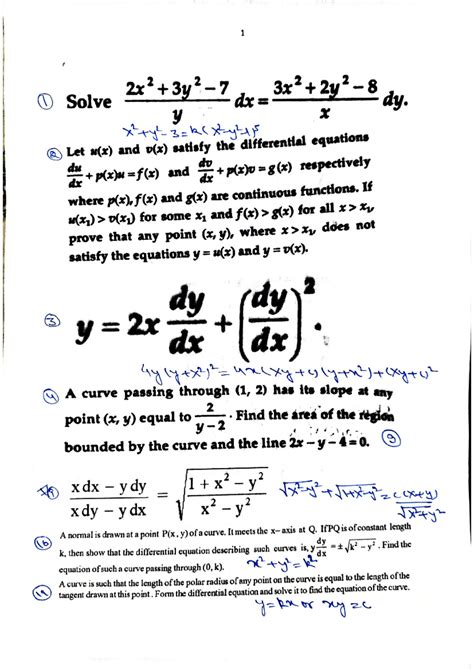 1
① Solve (2x² + 3y² − 7)/y dx = (3x² + 2y² − 8)/x dy.
x²+y²−3=k(x²−y²−1)⁵
② Let u(x) and v(x) satisfy the differential equations
du/dx + p(x)u = f(x) and dv/dx + p(x)v = g(x) respectively
where p(x), f(x) and g(x) are continuous functions. If
u(x₁) > v(x₁) for some x₁ and f(x) > g(x) for all x > x₁,
prove that any point (x, y), where x > x₁, does not
satisfy the equations y = u(x) and y = v(x).
③ y = 2x dy/dx + (dy/dx)².
4y(y+x²)² = 4x(xy+c)(y+x²)+(xy+c)²
④ A curve passing through (1, 2) has its slope at any
point (x, y) equal to 2/(y−2). Find the area of the region
bounded by the curve and the line 2x − y − 4 = 0. ⑨
(x dx − y dy)/(x dy − y dx) = √((1 + x² − y²)/(x² − y²)) √x²−y² + √1+x²−y² = c(x+y)/√x²−y²
A normal is drawn at a point P(x, y) of a curve. It meets the x− axis at Q. If PQ is of constant length
k, then show that the differential equation describing such curves is, y dy/dx = ±√(k² − y²). Find the
equation of such a curve passing through (0, k). x²+y²=k²
A curve is such that the length of the polar radius of any point on the curve is equal to the length of the
tangent drawn at this point. Form the differential equation and solve it to find the equation of the curve.
y=kx or xy=c